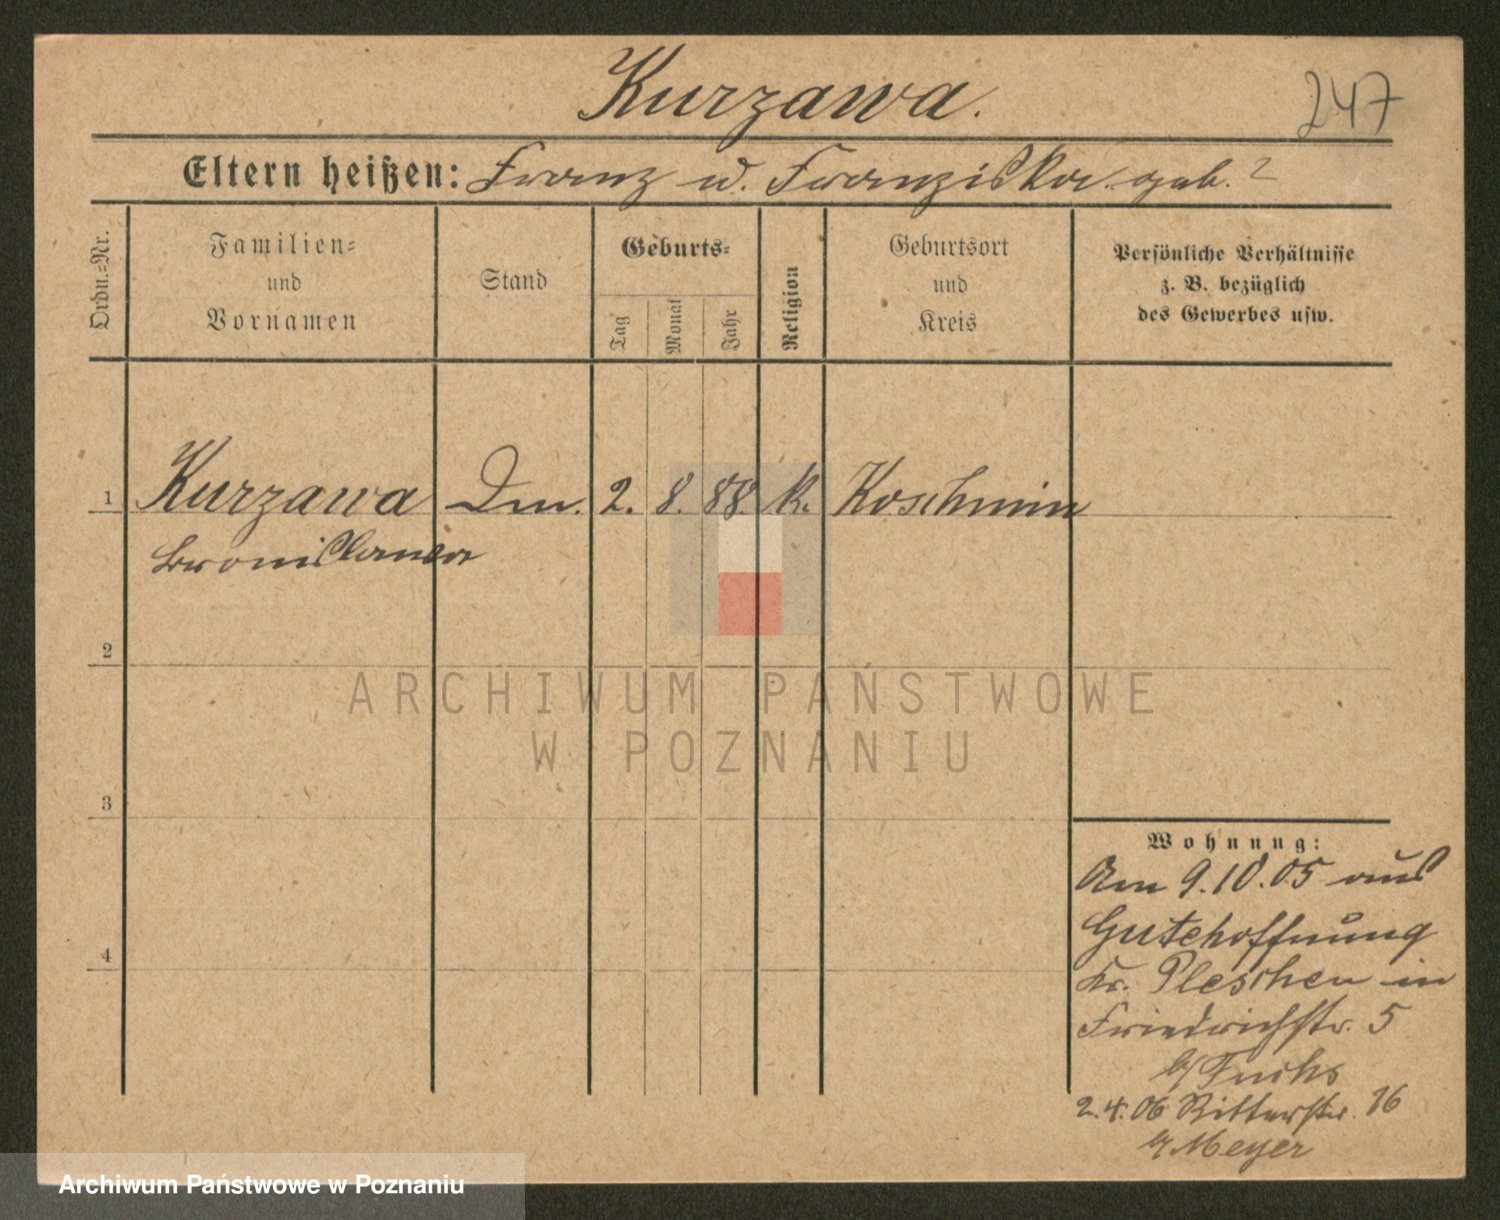 Kurzawa.
247
Eltern heißen: Franz u. Franziska geb. ?
Ordn.=Nr.
Familien=
und
Vornamen
Stand
Geburts=
Tag
Monat
Jahr
Religion
Geburtsort
und
Kreis
Persönliche Verhältnisse
z. B. bezüglich
des Gewerbes usw.
1 Kurzawa Dm. 2. 8. 88. k. Koschmin
Bronislawa
2
3
4
Wohnung:
Am 9.10.05 aus
Gutehoffnung
Kr. Pleschen in
Friedrichstr. 5
b/Fuchs
2.4.06 Ritterstr. 16
b/Meyer
ARCHIWUM PAŃSTWOWE
W POZNANIU
Archiwum Państwowe w Poznaniu